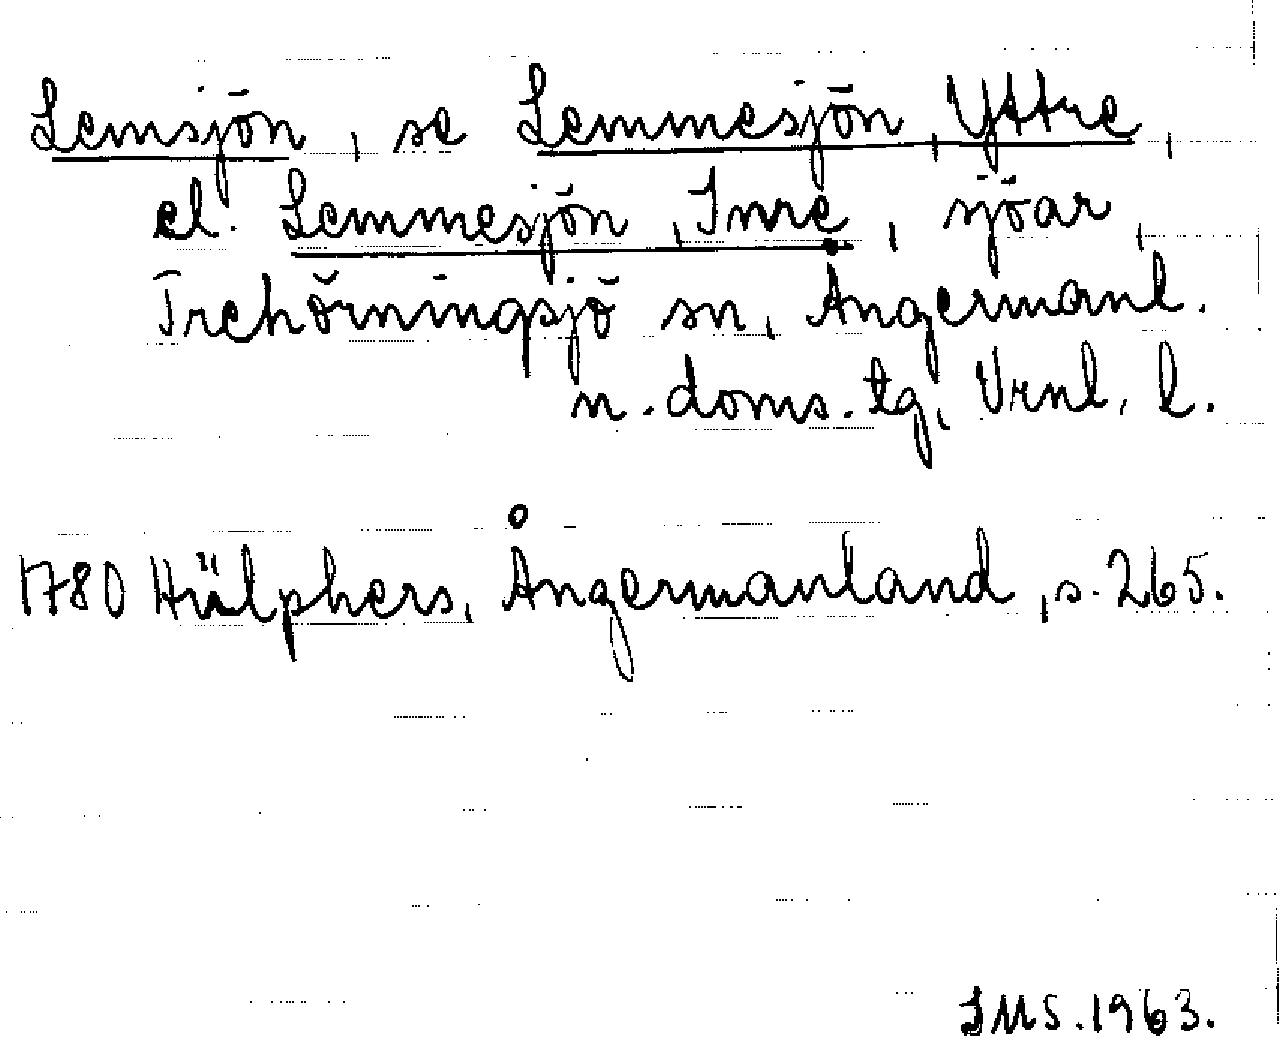 Lemsjön, se Lemmesjön, Yttre,
el. Lemmesjön, Inre, sjöar,
Trehörningsjö sn, Angermanl.
n. doms. tg, Vrnl. l.
1780 Hülphers, Ångermanland, s. 265.
IMS. 1963.